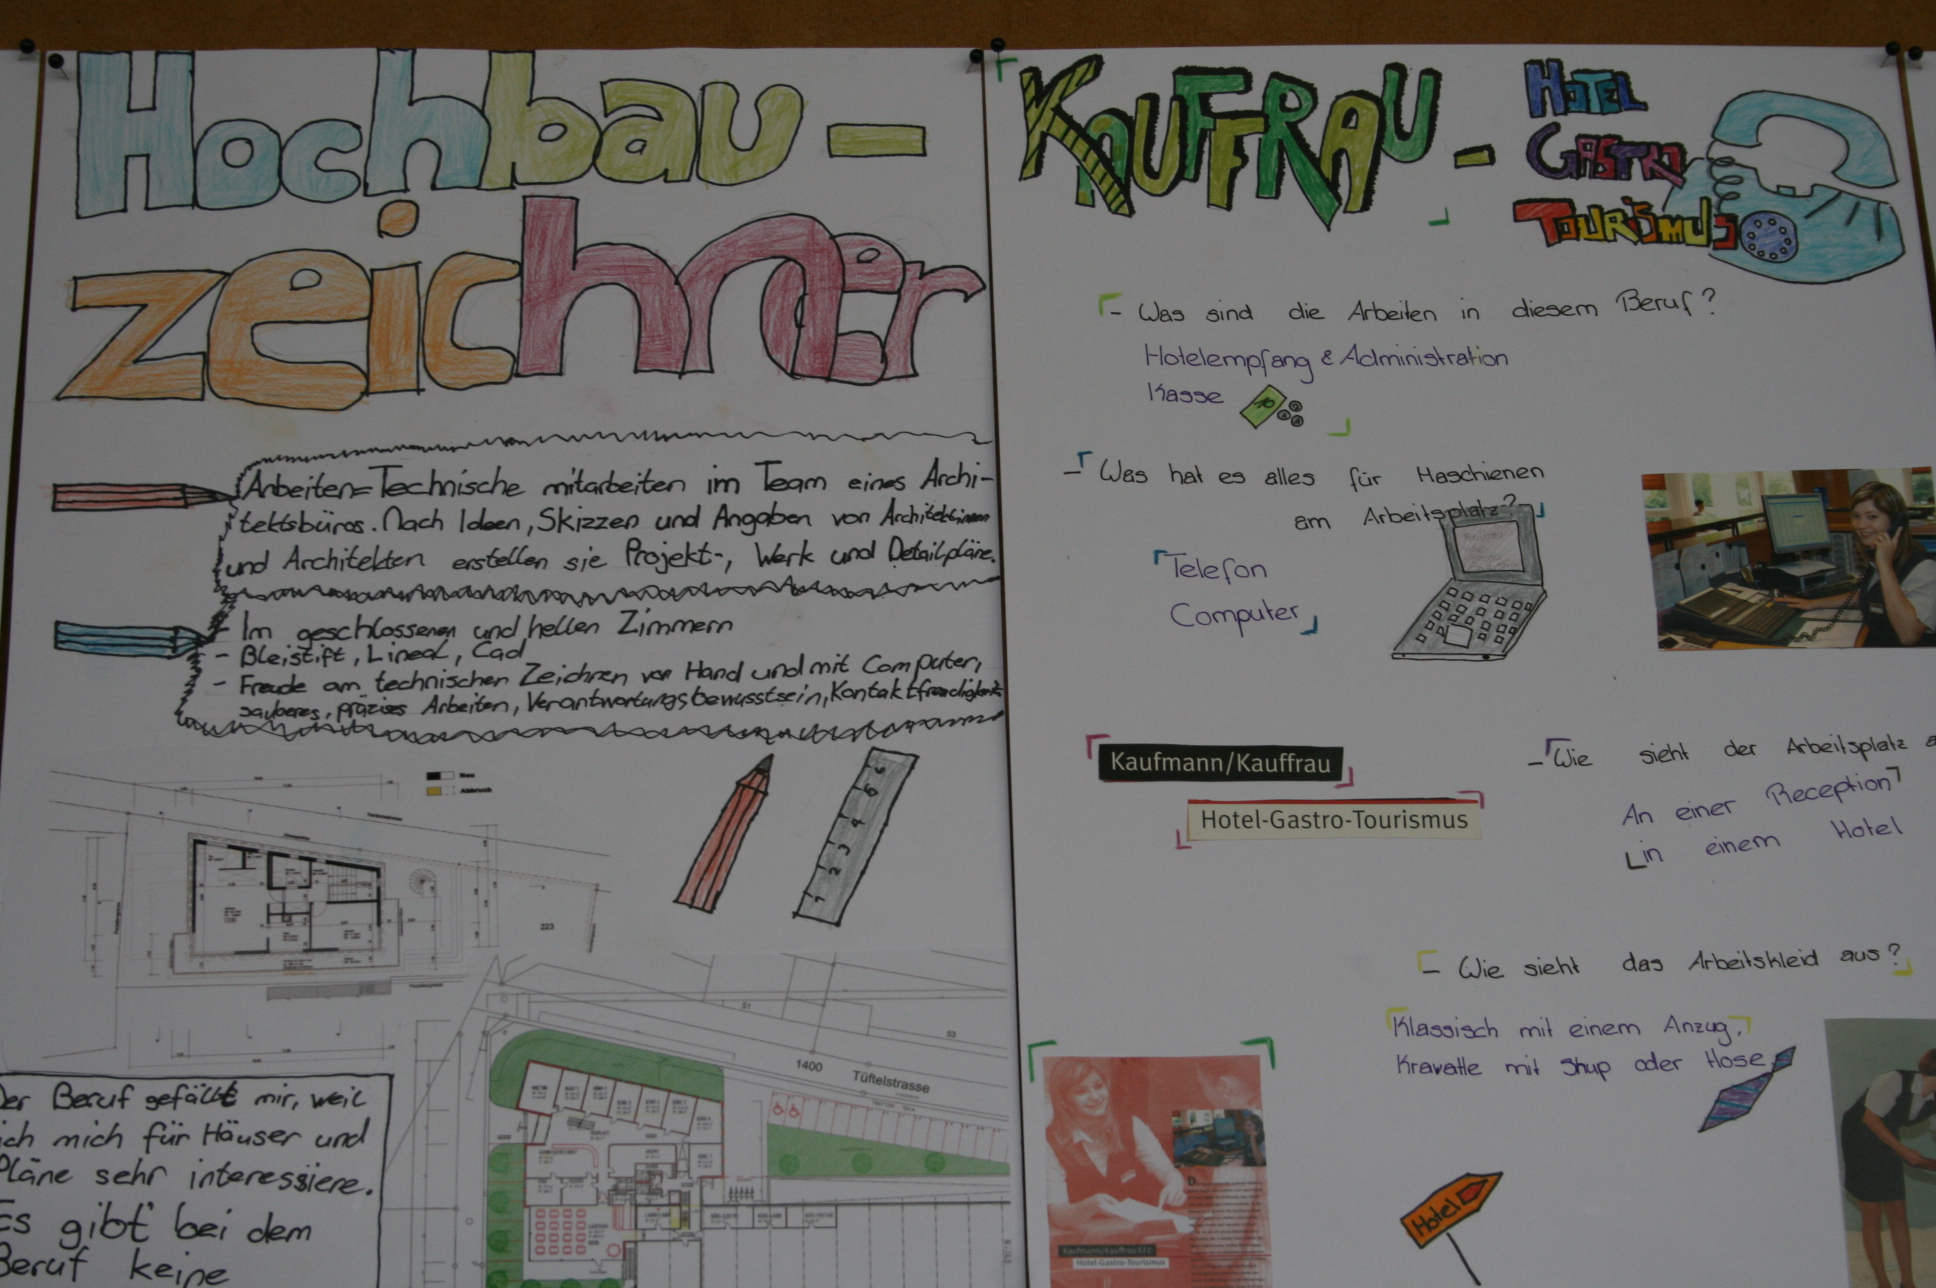 Hochbau-
zeichner
Arbeiten=Technische mitarbeiten im Team eines Archi-
tektsbüros. Nach Ideen, Skizzen und Angaben von Architektinnen
und Architekten erstellen sie Projekt-, Werk und Detailpläne.
- Im geschlossenen und hellen Zimmern
- Bleistift, Lineal, Cad
- Freude am technischen Zeichnen von Hand und mit Computer,
sauberes, präzises Arbeiten, Verantwortungsbewusstsein, Kontaktfreudigkeit
Neu
Abbruch
1 2 3 4 5 6
223
51
53
1400 Tüftelstrasse
Der Beruf gefällt mir, weil
ich mich für Häuser und
Pläne sehr interessiere.
Es gibt bei dem
Beruf keine
KAUFFRAU -
HOTEL
GASTRO
TOURISMUS
- Was sind die Arbeiten in diesem Beruf?
Hotelempfang & Administration
Kasse
10
- Was hat es alles für Maschienen
am Arbeitsplatz?
Telefon
Computer
Kaufmann/Kauffrau
Hotel-Gastro-Tourismus
- Wie sieht der Arbeitsplatz a
An einer Reception
in einem Hotel
- Wie sieht das Arbeitskleid aus?
Klassisch mit einem Anzug,
Kravatte mit Shup oder Hose
Kaufmann/Kauffrau EFZ
Hotel-Gastro-Tourismus
Hotel